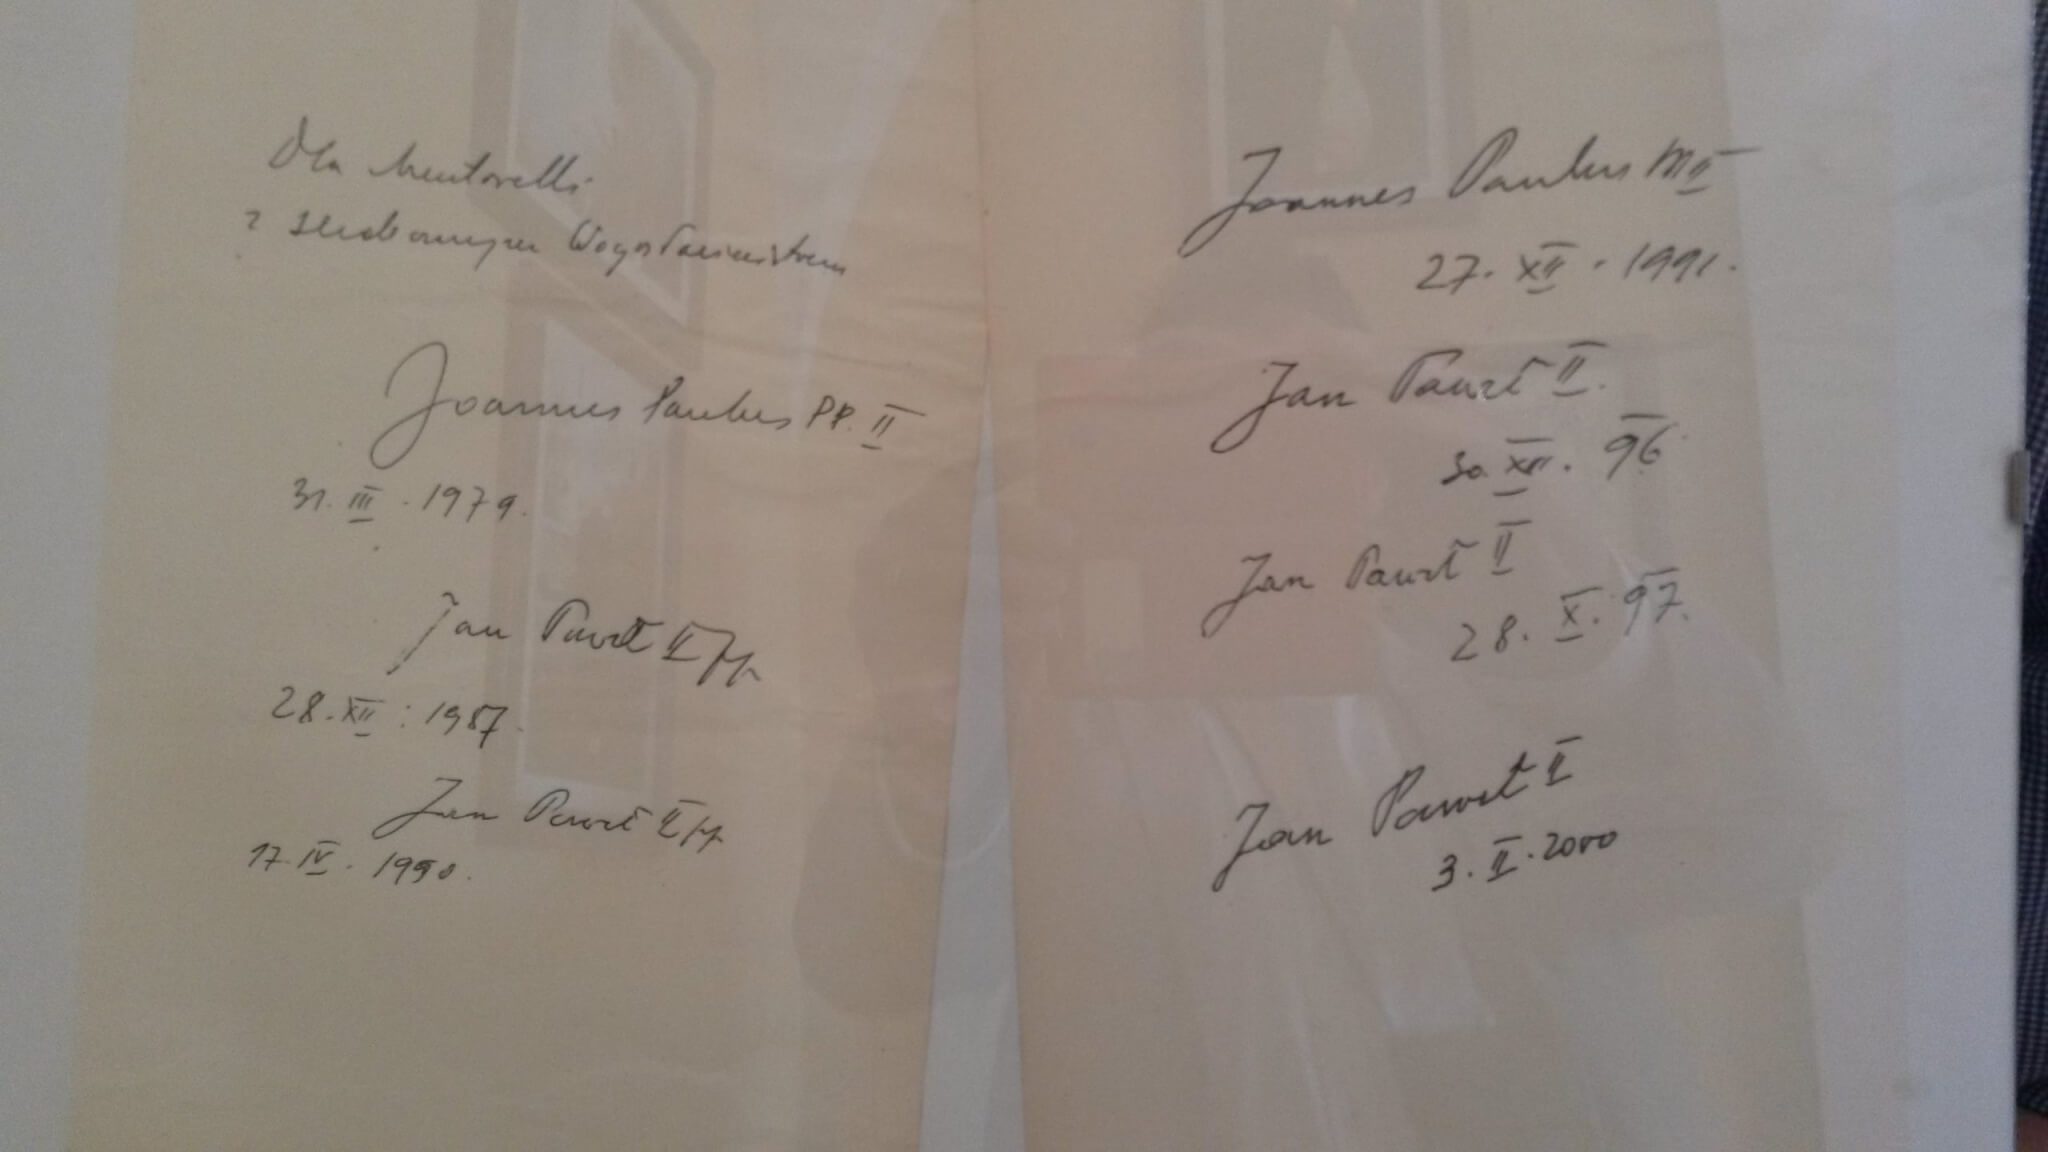 Dla Mentorelli
z serdecznym Błogosławieństwem
Joannes Paulus PP. II
31. III. 1979.
Jan Paweł II pp
28. XII. 1987.
Jan Paweł II pp
17. IV. 1990.
Joannes Paulus PP II
27. XII. 1991.
Jan Paweł II.
30 XII. 96
Jan Paweł II
28. X. 97.
Jan Paweł II
3. II. 2000